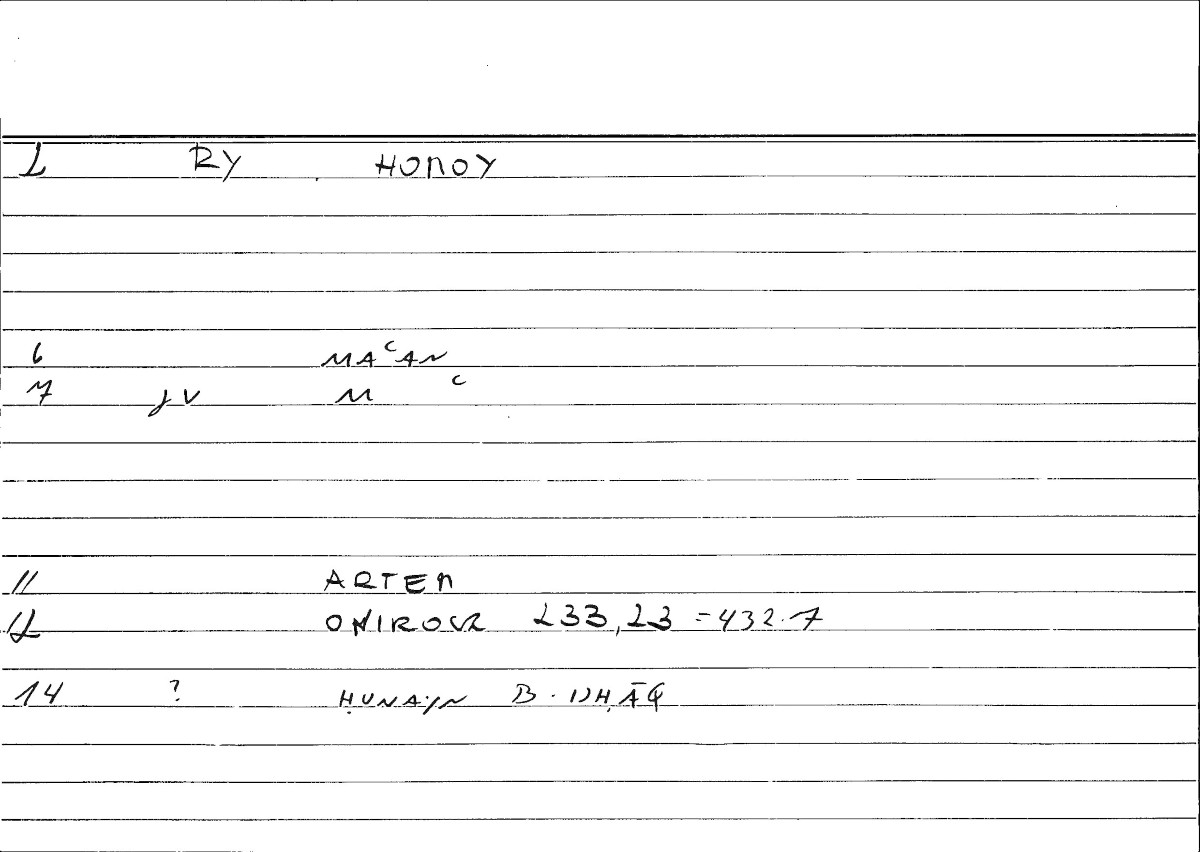 2 RY ὁμοῦ
6 MAʿAN
7 JV Mʿ
11 ARTEM
12 ONIROCR 233,23 = 432.7
14 ? ḤUNAYN B. ISḤĀQ